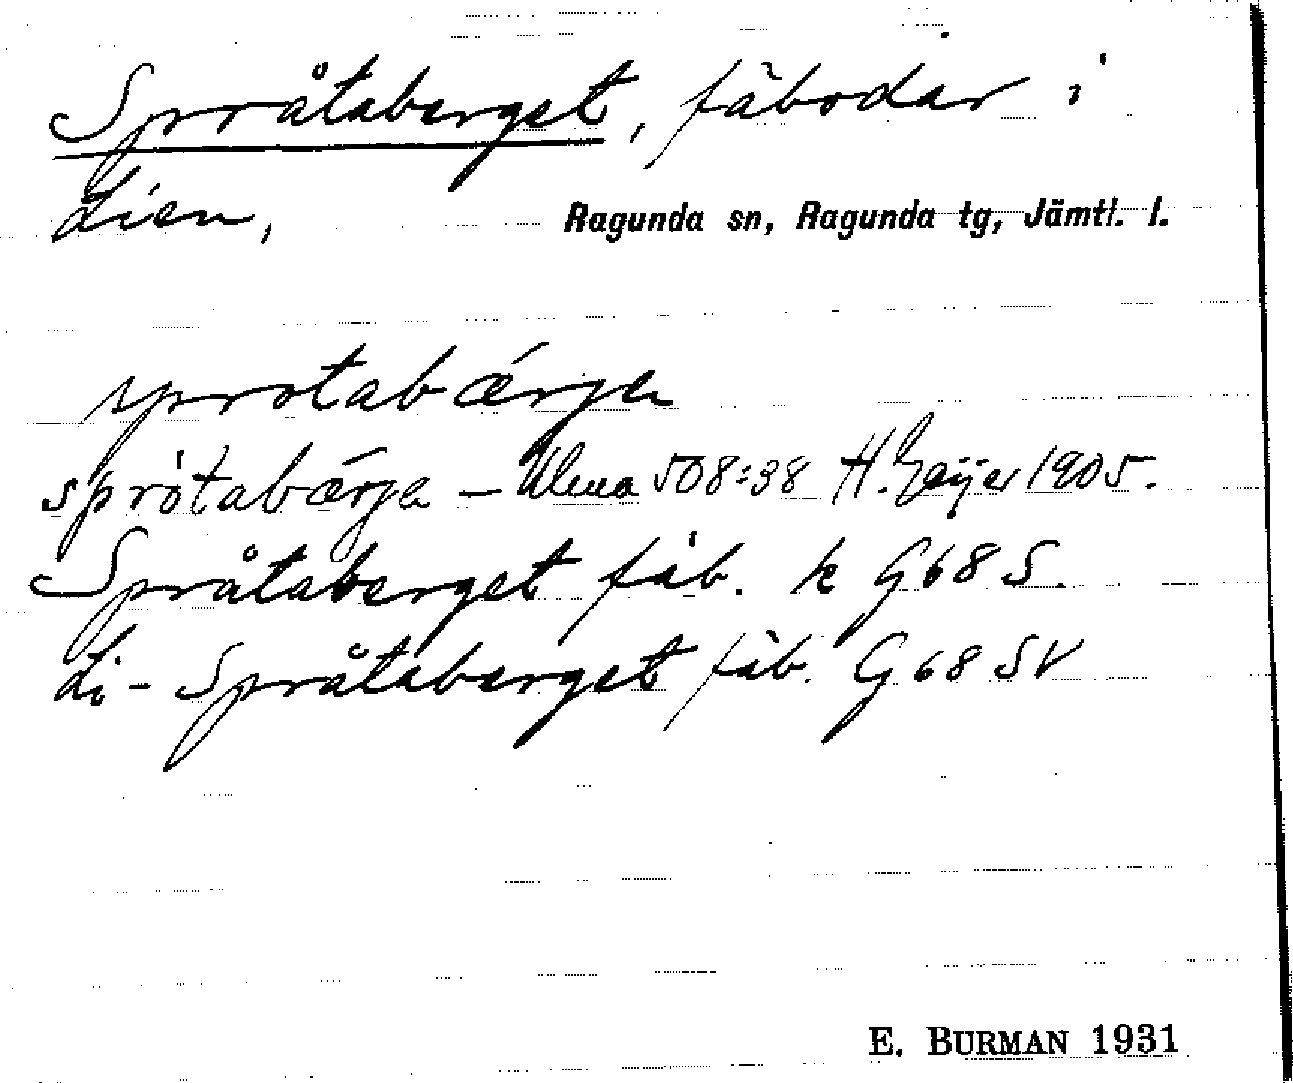 Språtaberget, fäbodar i
Lien, Ragunda sn, Ragunda tg, Jämtl. l.
sprotabǽrja
sprótabǽrja – Ulma 508:38 H. Geijer 1905.
Språtaberget fäb. k G68 S.
Li-Språtaberget fäb. G68 SV
E. BURMAN 1931